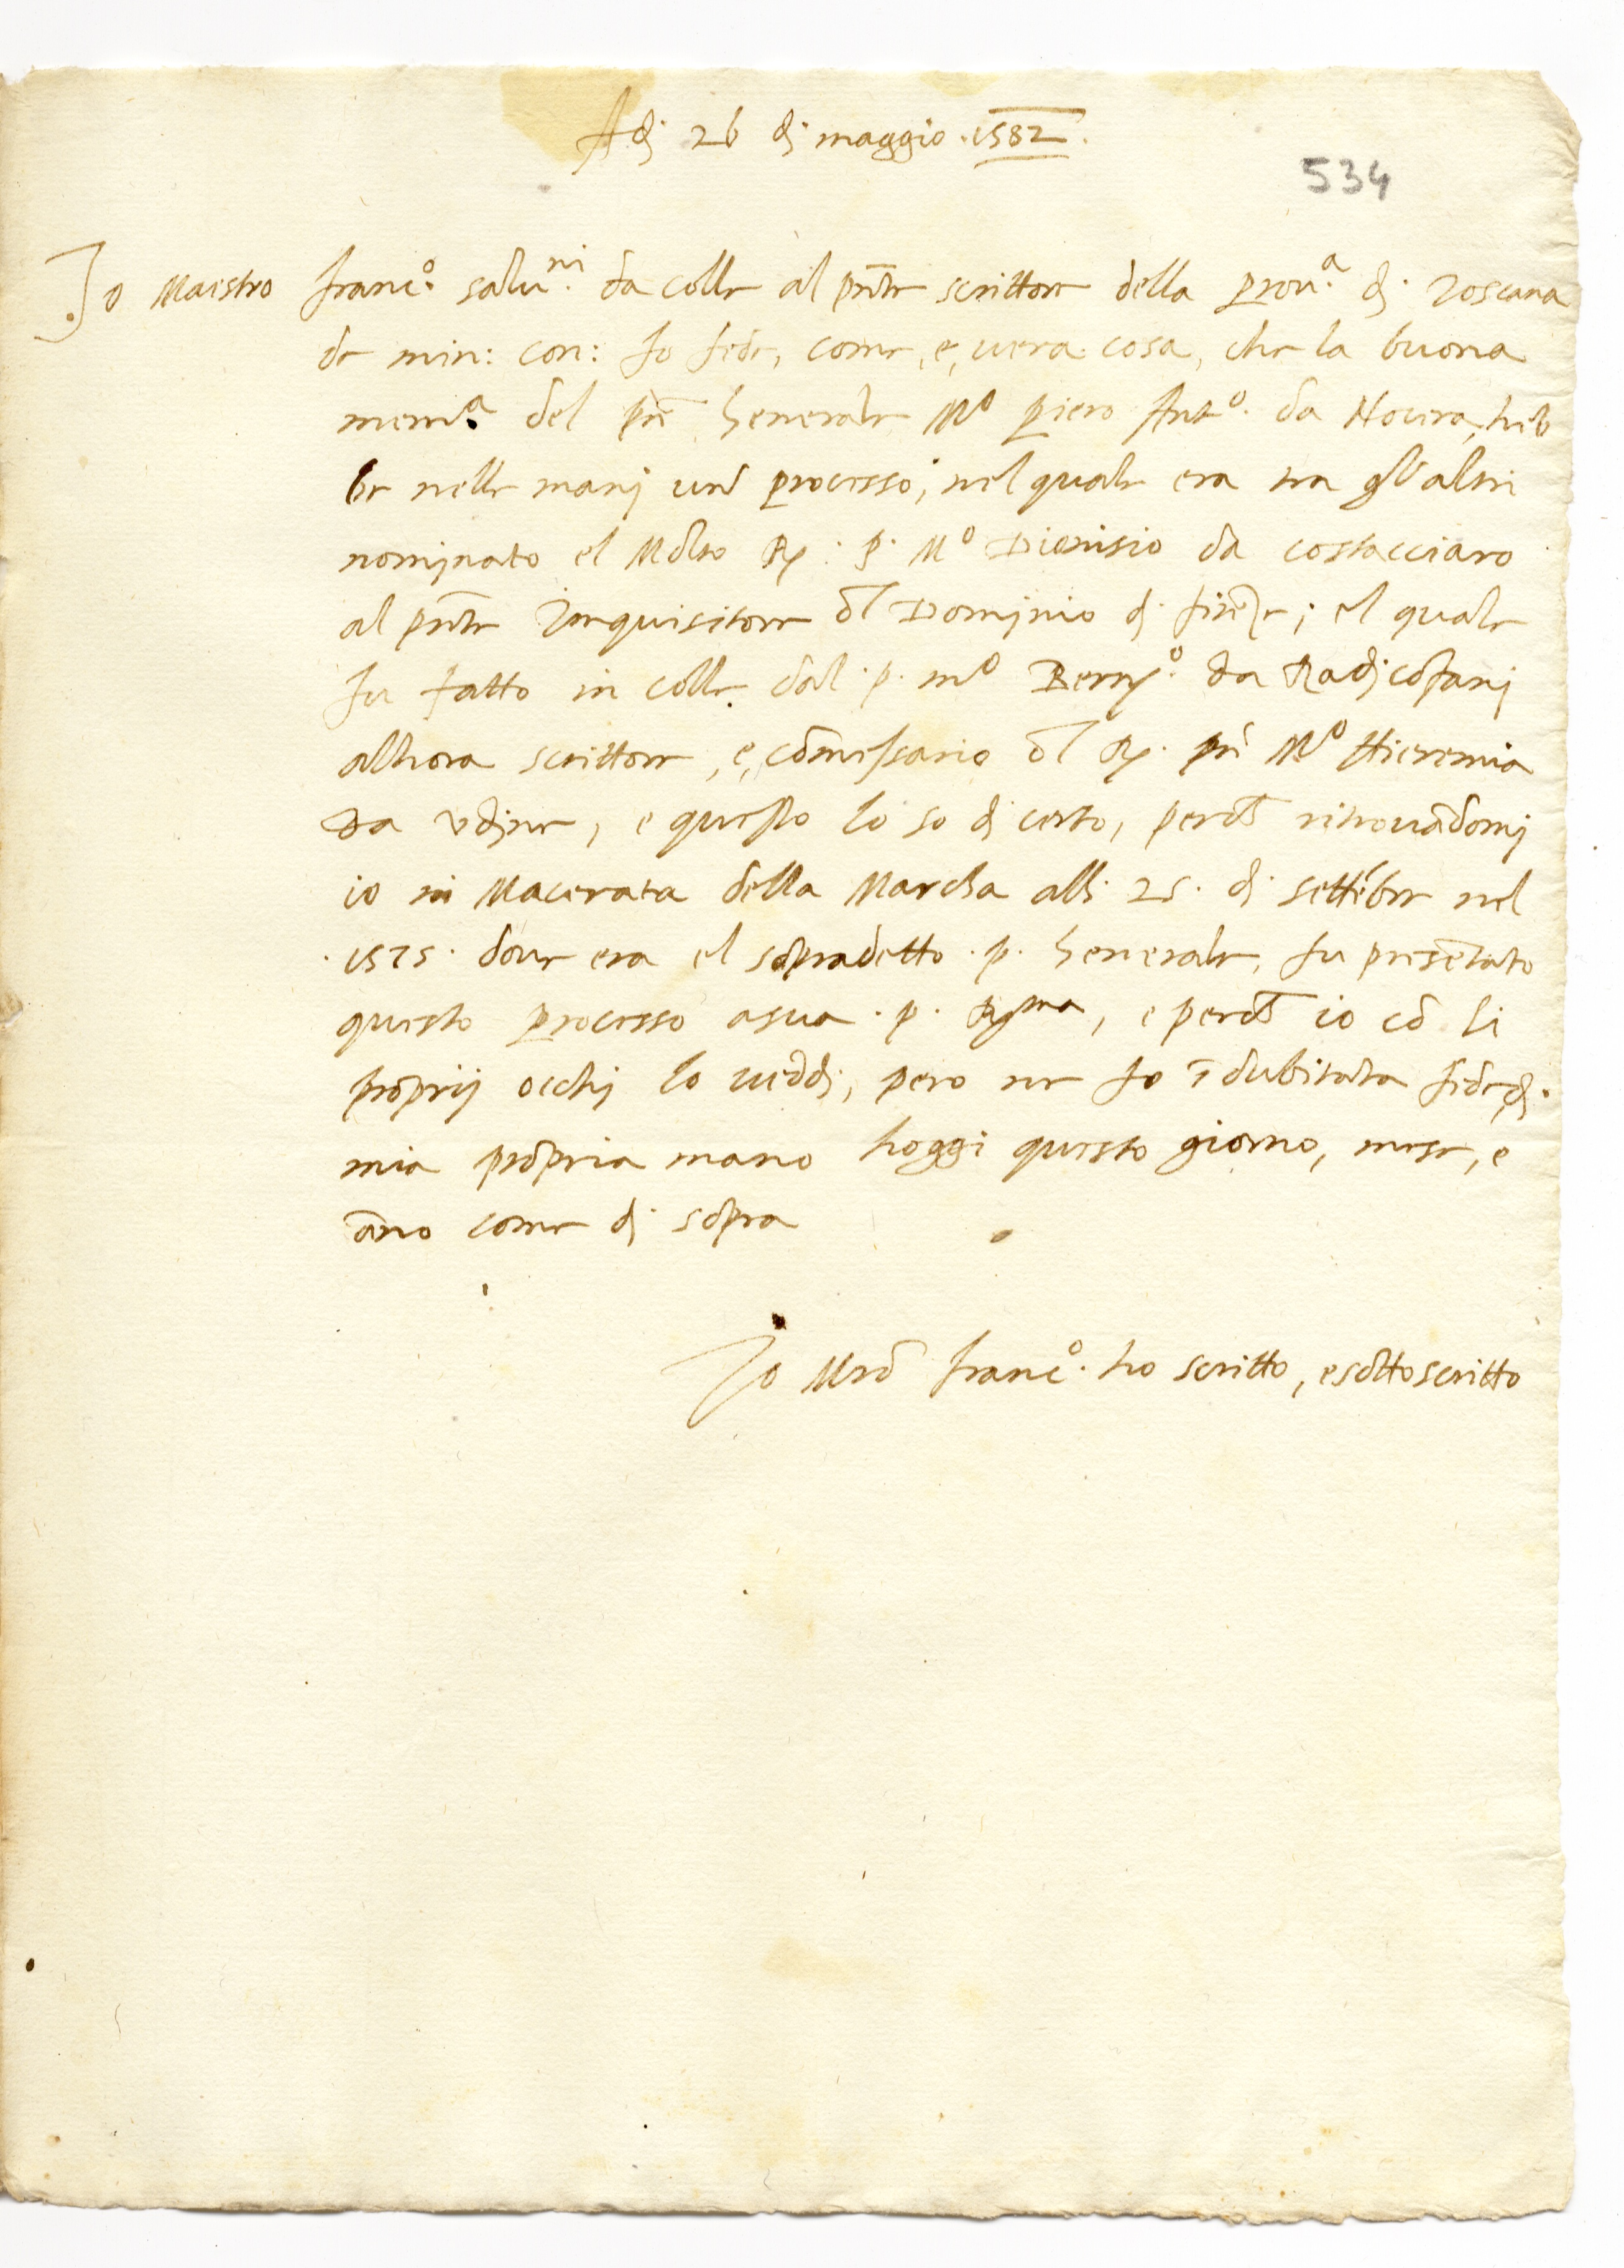 Adj 26 dj maggio .1582.
534
Jo Maestro franc.o salu.ni da colle al pn̄te scrittore della prou.a dj Toscana
de min: con: fo fede, come, e, uera cosa, che la buona
mem.a del pr̄e Generale M.o Piero Ant.o da Nocera, heb
be nelle manj un processo, nel quale era tra gl'altri
nominato el Molto R.: p. M.o Dionisio da costacciaro
al pn̄te Inquisitore dl Dominio dj fire͂ze; el quale
fu fatto in colle dal p. m.o Berny.o da Radjcofanj
alhora scrittore, e, co͂messario dl R. pr̄e M.o Hieremia
Da udjne, e questo lo so dj certo, perch͂ ritroua͂domj
io in Macerata della Marcha alli 25. dj sette͂bre nel
.1575. doue era el sopradetto .p. Generale, fu prese͂tato
questo processo asua .p. R.ma, e perch͂ io co͂ li
proprij occhj lo ueddj, pero ne fo i͂dubitata fede, dj
mia propria mano hoggi questo giorno, mese, e
a͂no come dj sopra
Jo Mr͂o franc.o ho scritto, e sottoscritto